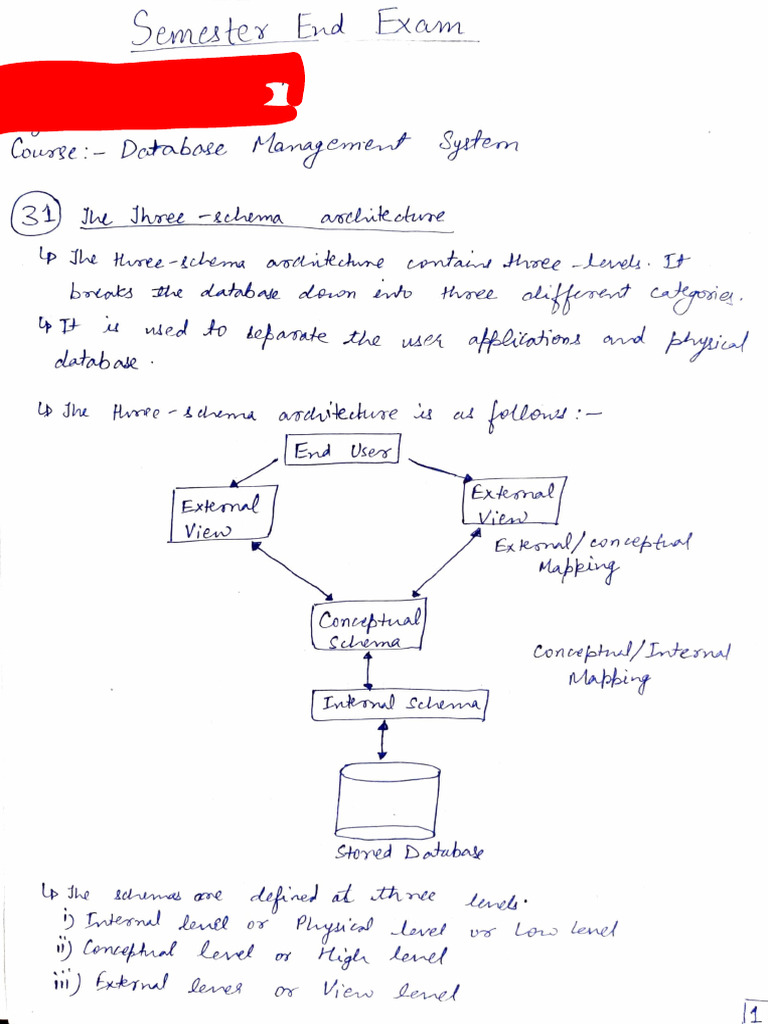 Semester End Exam
Course:- Database Management System
31 The Three-schema architecture
↳ The three-schema architecture contains three-levels. It
breaks the database down into three different categories.
↳ It is used to separate the user applications and physical
database.
↳ The three-schema architecture is as follows:-
End User
External
View
External
View
External/conceptual
Mapping
Conceptual
Schema
Conceptual/Internal
Mapping
Internal Schema
Stored Database
↳ The schemas are defined at three levels.
i) Internal level or Physical level or Low level
ii) Conceptual level or High level
iii) External level or View level
1